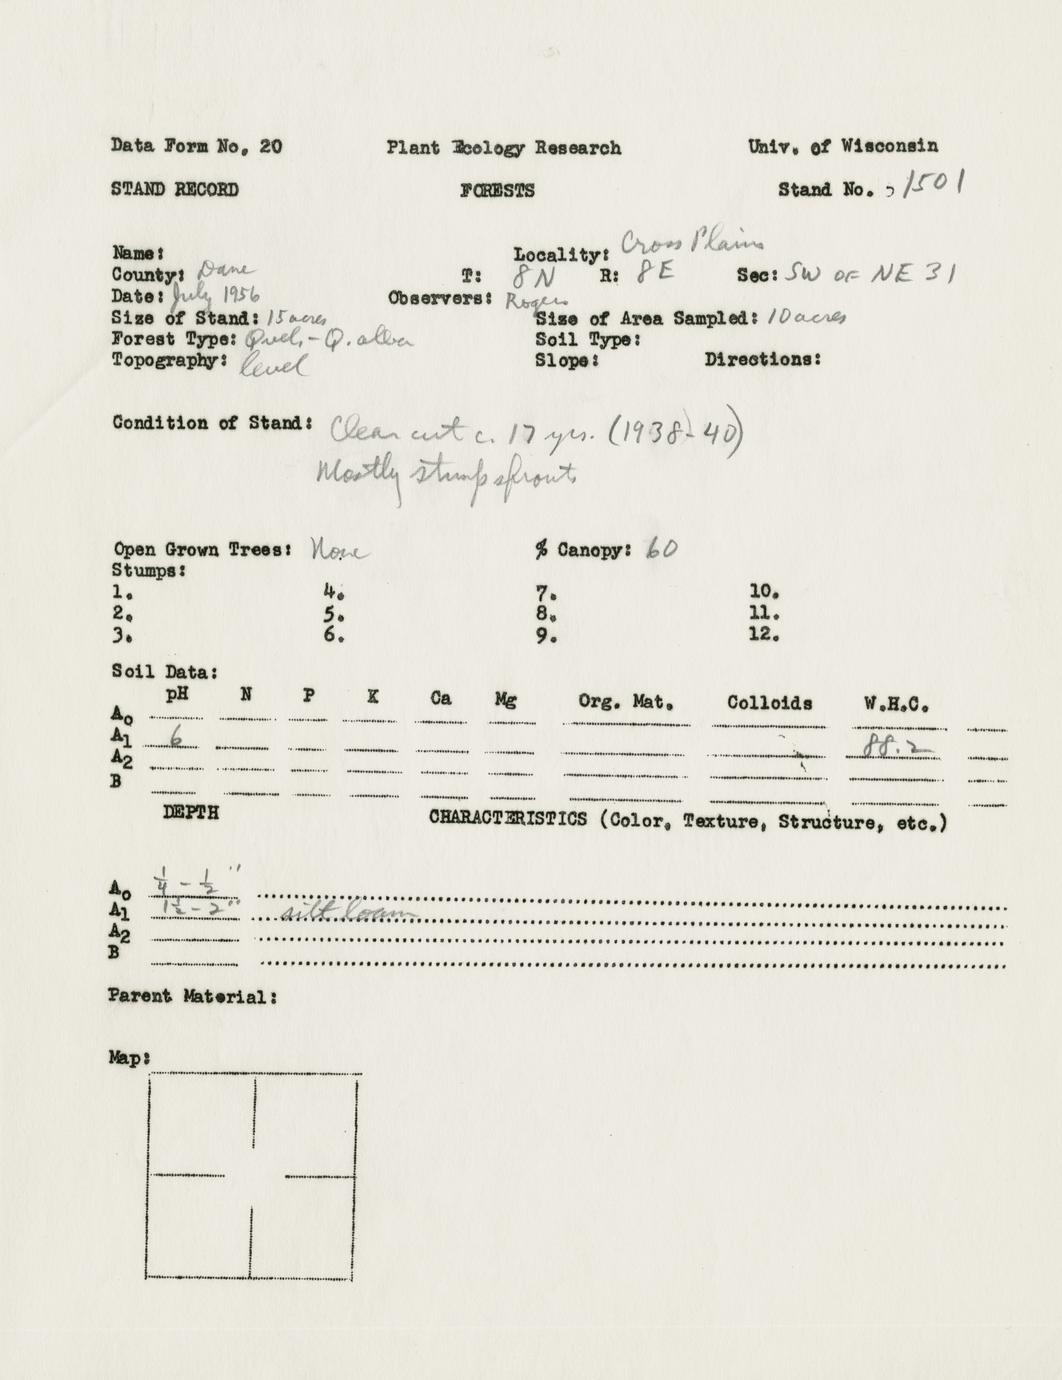 Data Form No. 20 Plant Ecology Research Univ. of Wisconsin
STAND RECORD FORESTS Stand No. 1501
Name: Locality: Cross Plains
County: Dane T: 8N R: 8E Sec: SW OF NE 31
Date: July 1956 Observers: Rogers
Size of Stand: 15 acres Size of Area Sampled: 10 acres
Forest Type: Q. vel. - Q. alba Soil Type:
Topography: level Slope: Directions:
Condition of Stand: Clear cut c. 17 yrs. (1938-40)
Mostly stump sprouts
Open Grown Trees: None % Canopy: 60
Stumps:
1. 4. 7. 10.
2. 5. 8. 11.
3. 6. 9. 12.
Soil Data:
pH N P K Ca Mg Org. Mat. Colloids W.H.C.
Ao
A1 6 88.2
A2
B
DEPTH CHARACTERISTICS (Color, Texture, Structure, etc.)
Ao 1/4 - 1/2"
A1 1 1/2 - 2" silt loam
A2
B
Parent Material:
Map: